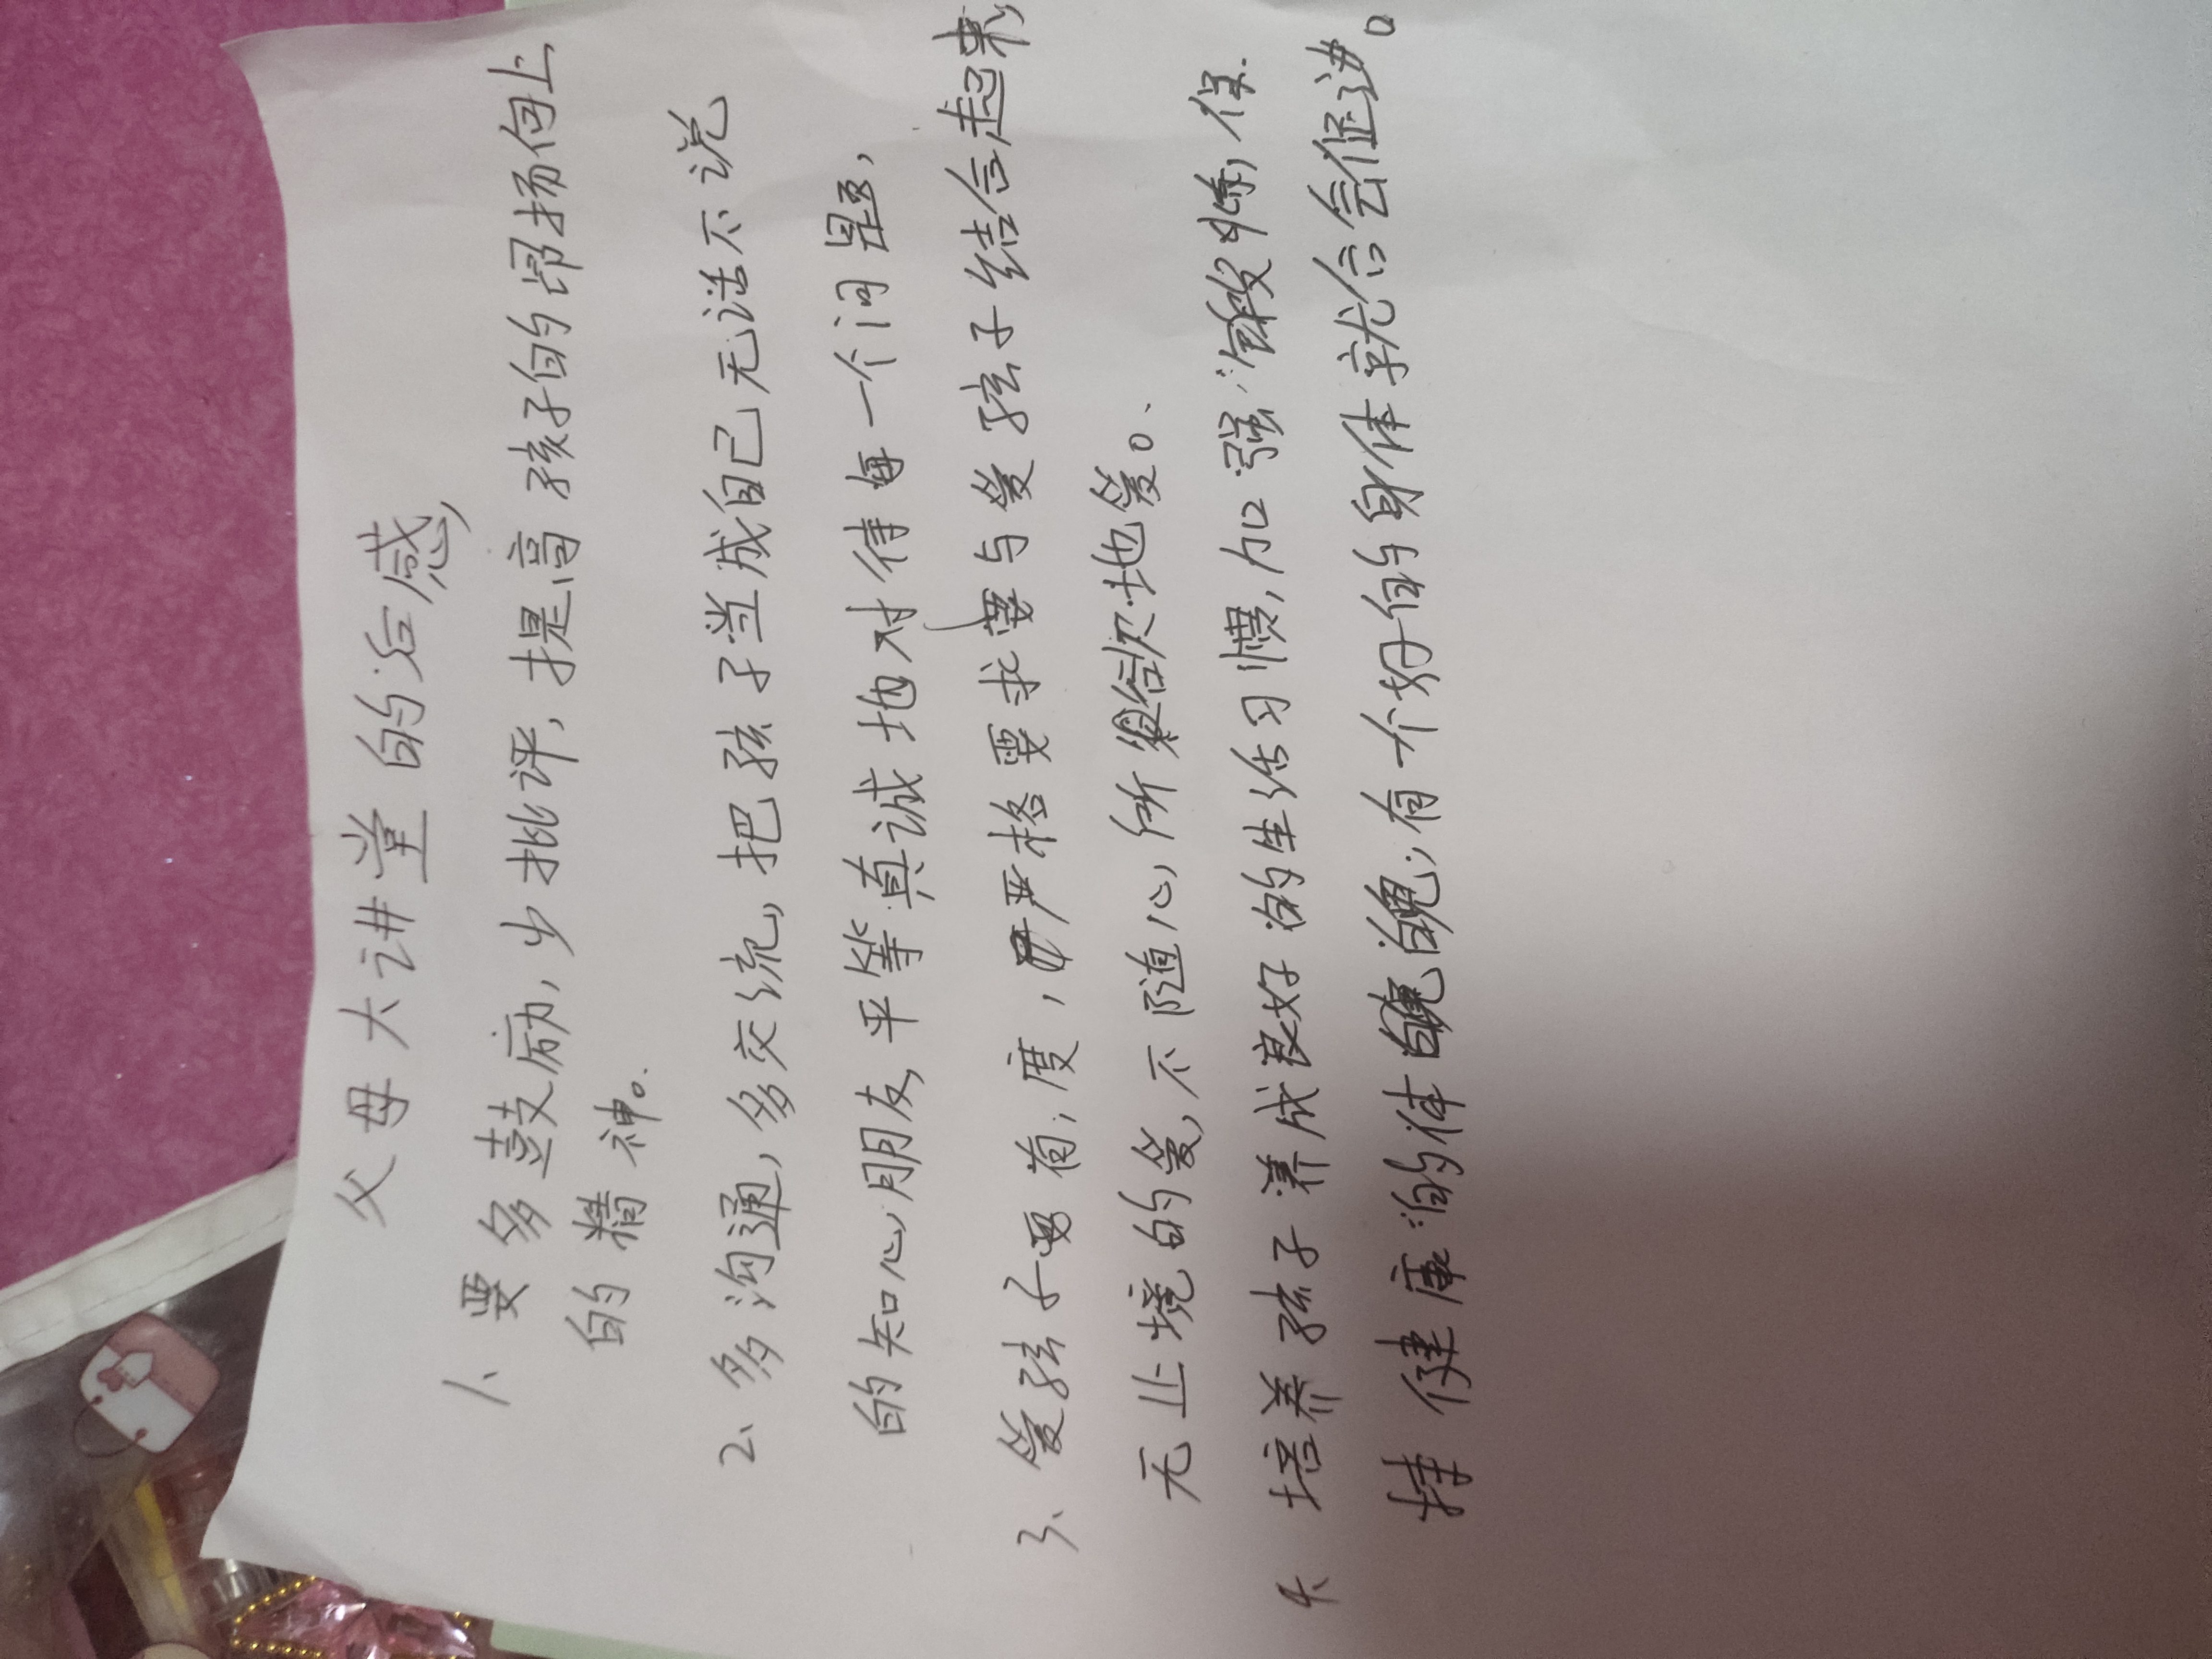 父母大讲堂的后感,
1、要多鼓励,少批评,提高孩子的昂扬向上
的精神。
2、多沟通,多交流,把孩子当成自己无话不说
的知心朋友,平等真诚地对待每一个问题,
3、爱孩子要有度,严格要求与爱孩子结合起来,
无止境的爱,不随心所欲地爱。
4、培养孩子养成良好的生活习惯,加强锻炼,保
持健康的体魄,有个好的身体就会促进。